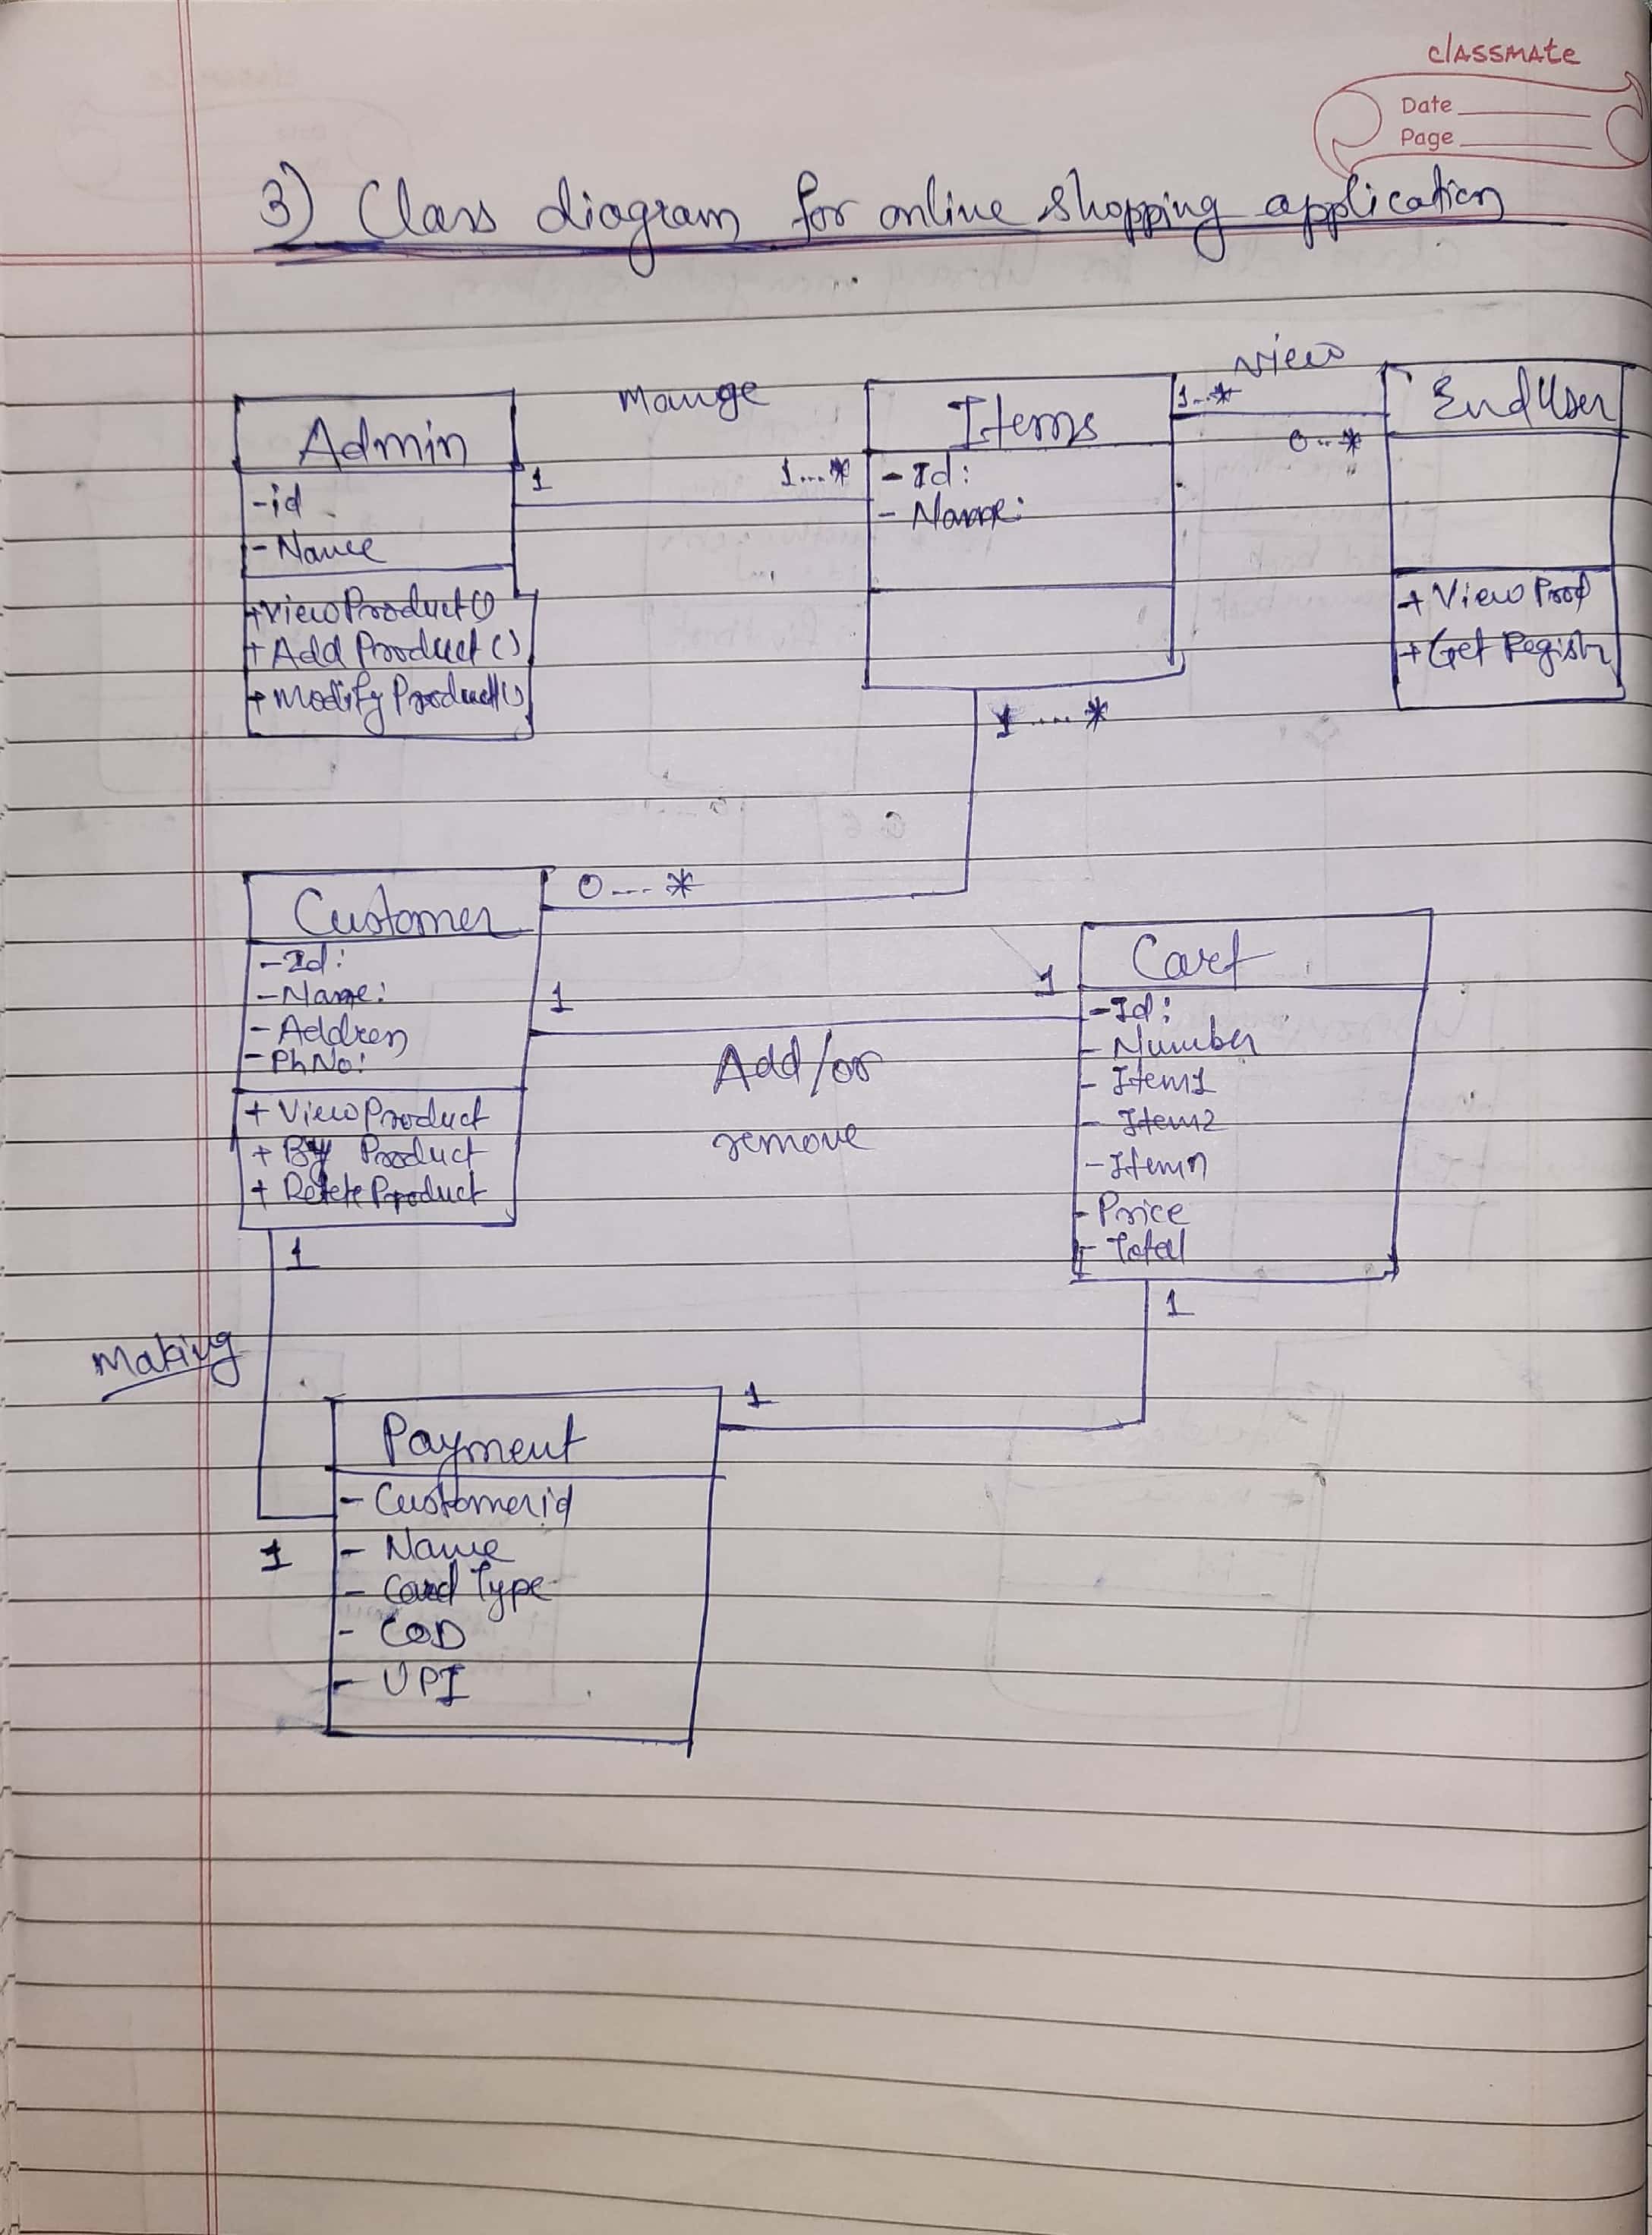 classmate
Date
Page
3) Class diagram for online shopping application
Admin
-id
-Name
+ViewProduct()
+Add Product()
+Modify Product()
Mange
1
1...*
Items
-Id:
-Name:
1..*
View
0..*
EndUser
+ View Prod
+Get Registr
1....*
Customer
-Id:
-Name:
-Address
-PhNo:
+ ViewProduct
+ By Product
+ Delete Product
0---*
1
1
Add/or
remove
Cart
-Id:
-Number
-Item1
-Item2
-Itemn
-Price
-Total
1
Making
1
1
1
Payment
- Customerid
- Name
- Card Type
- COD
- UPI